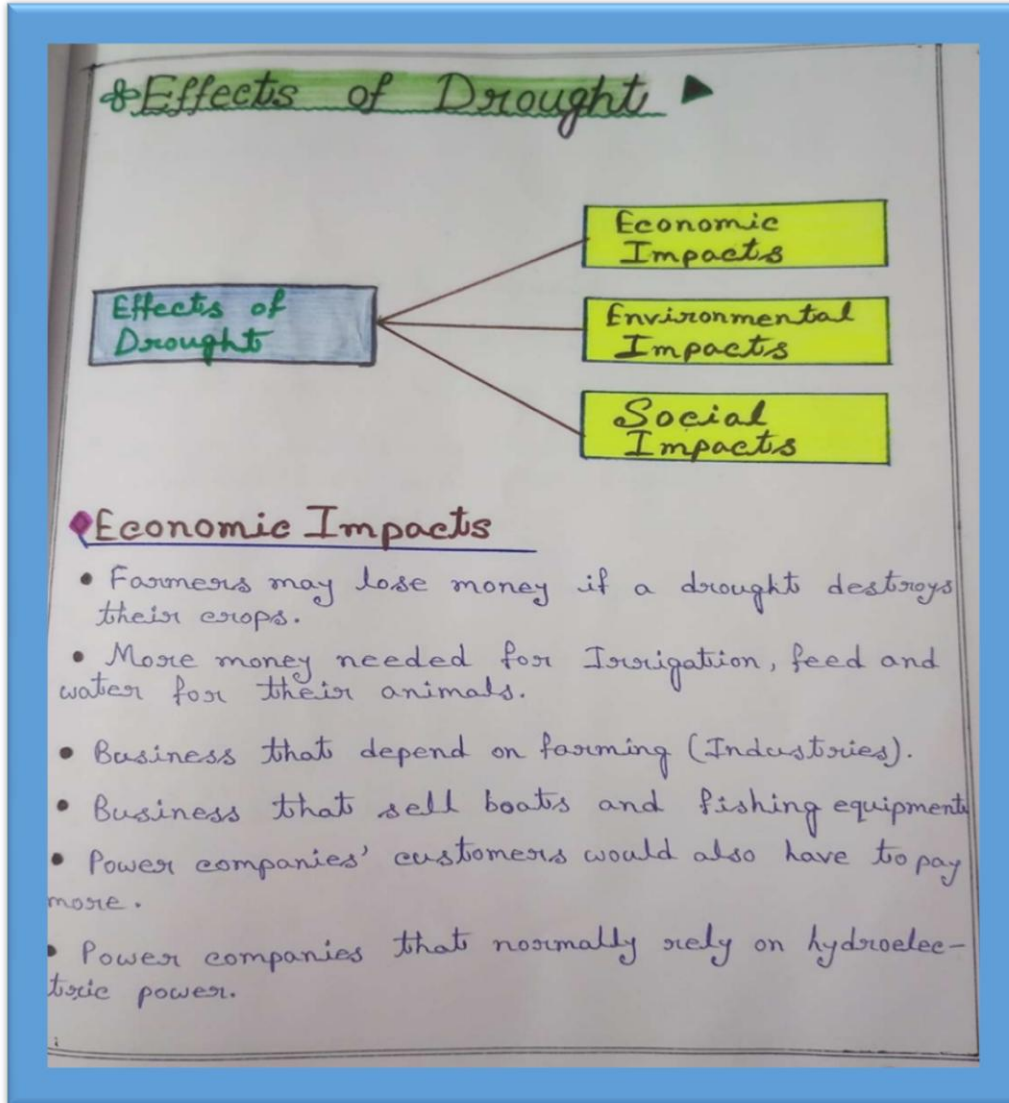 Effects of Drought
Economic
Impacts
Effects of
Drought
Environmental
Impacts
Social
Impacts
Economic Impacts
• Farmers may lose money if a drought destroys
their crops.
• More money needed for Irrigation, feed and
water for their animals.
• Business that depend on farming (Industries).
• Business that sell boats and fishing equipment
• Power companies' customers would also have to pay
more.
• Power companies that normally rely on hydroelec-
tric power.